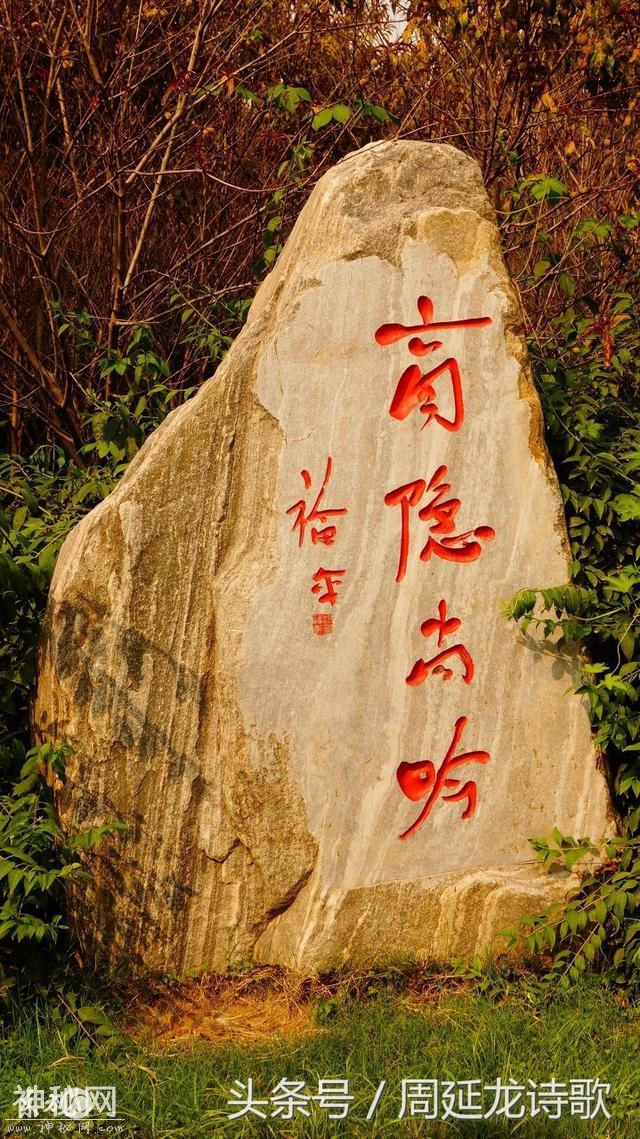 商隐尚吟
裕平
神秘网
www.神秘网.com
头条号 / 周延龙诗歌